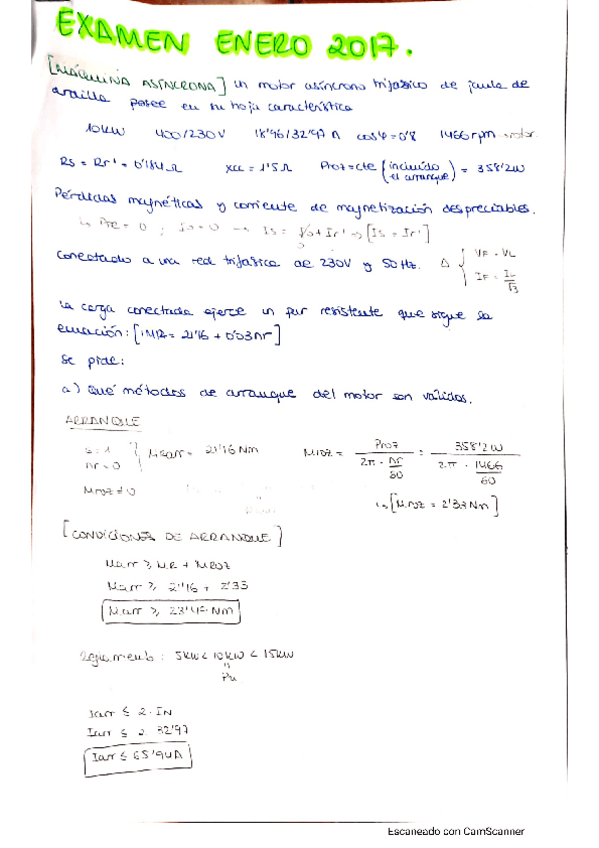 EXAMEN ENERO 2017.
[MÁQUINA ASÍNCRONA] Un motor asíncrono trifásico de jaula de
ardilla posee en su hoja característica
10kW 400/230V 18'96/32'97 A cosφ=0'8 1466 rpm rotor
Rs = Rr' = 0'184Ω Xcc = 1'5Ω Proz=cte (incluido el arranque) = 358'2W
Pérdidas magnéticas y corriente de magnetización despreciables.
↳ PFe = 0 ; Io = 0 → Is = Io + Ir' → [Is = Ir']
0
Conectado a una red trifásica de 230V y 50Hz. Δ { VF = VL
IF = IL/√3
La carga conectada ejerce un par resistente que sigue la
ecuación: [MR = 21'16 + 0'03nr]
Se pide:
a) Qué métodos de arranque del motor son válidos.
ARRANQUE
s = 1
nr = 0 } MRarr = 21'16 Nm Mroz = Proz / (2π · nr/60) = 358'2W / (2π · 1466/60)
Mroz ≠ 0
↳ [Mroz = 2'33 Nm]
[CONDICIONES DE ARRANQUE]
Marr ≥ MR + Mroz
Marr ≥ 21'16 + 2'33
Marr ≥ 23'49 Nm
Reglamento: 5kW < 10kW < 15kW
"
Pu
Iarr ≤ 2·IN
Iarr ≤ 2·32'97
Iarr ≤ 65'94A
Escaneado con CamScanner